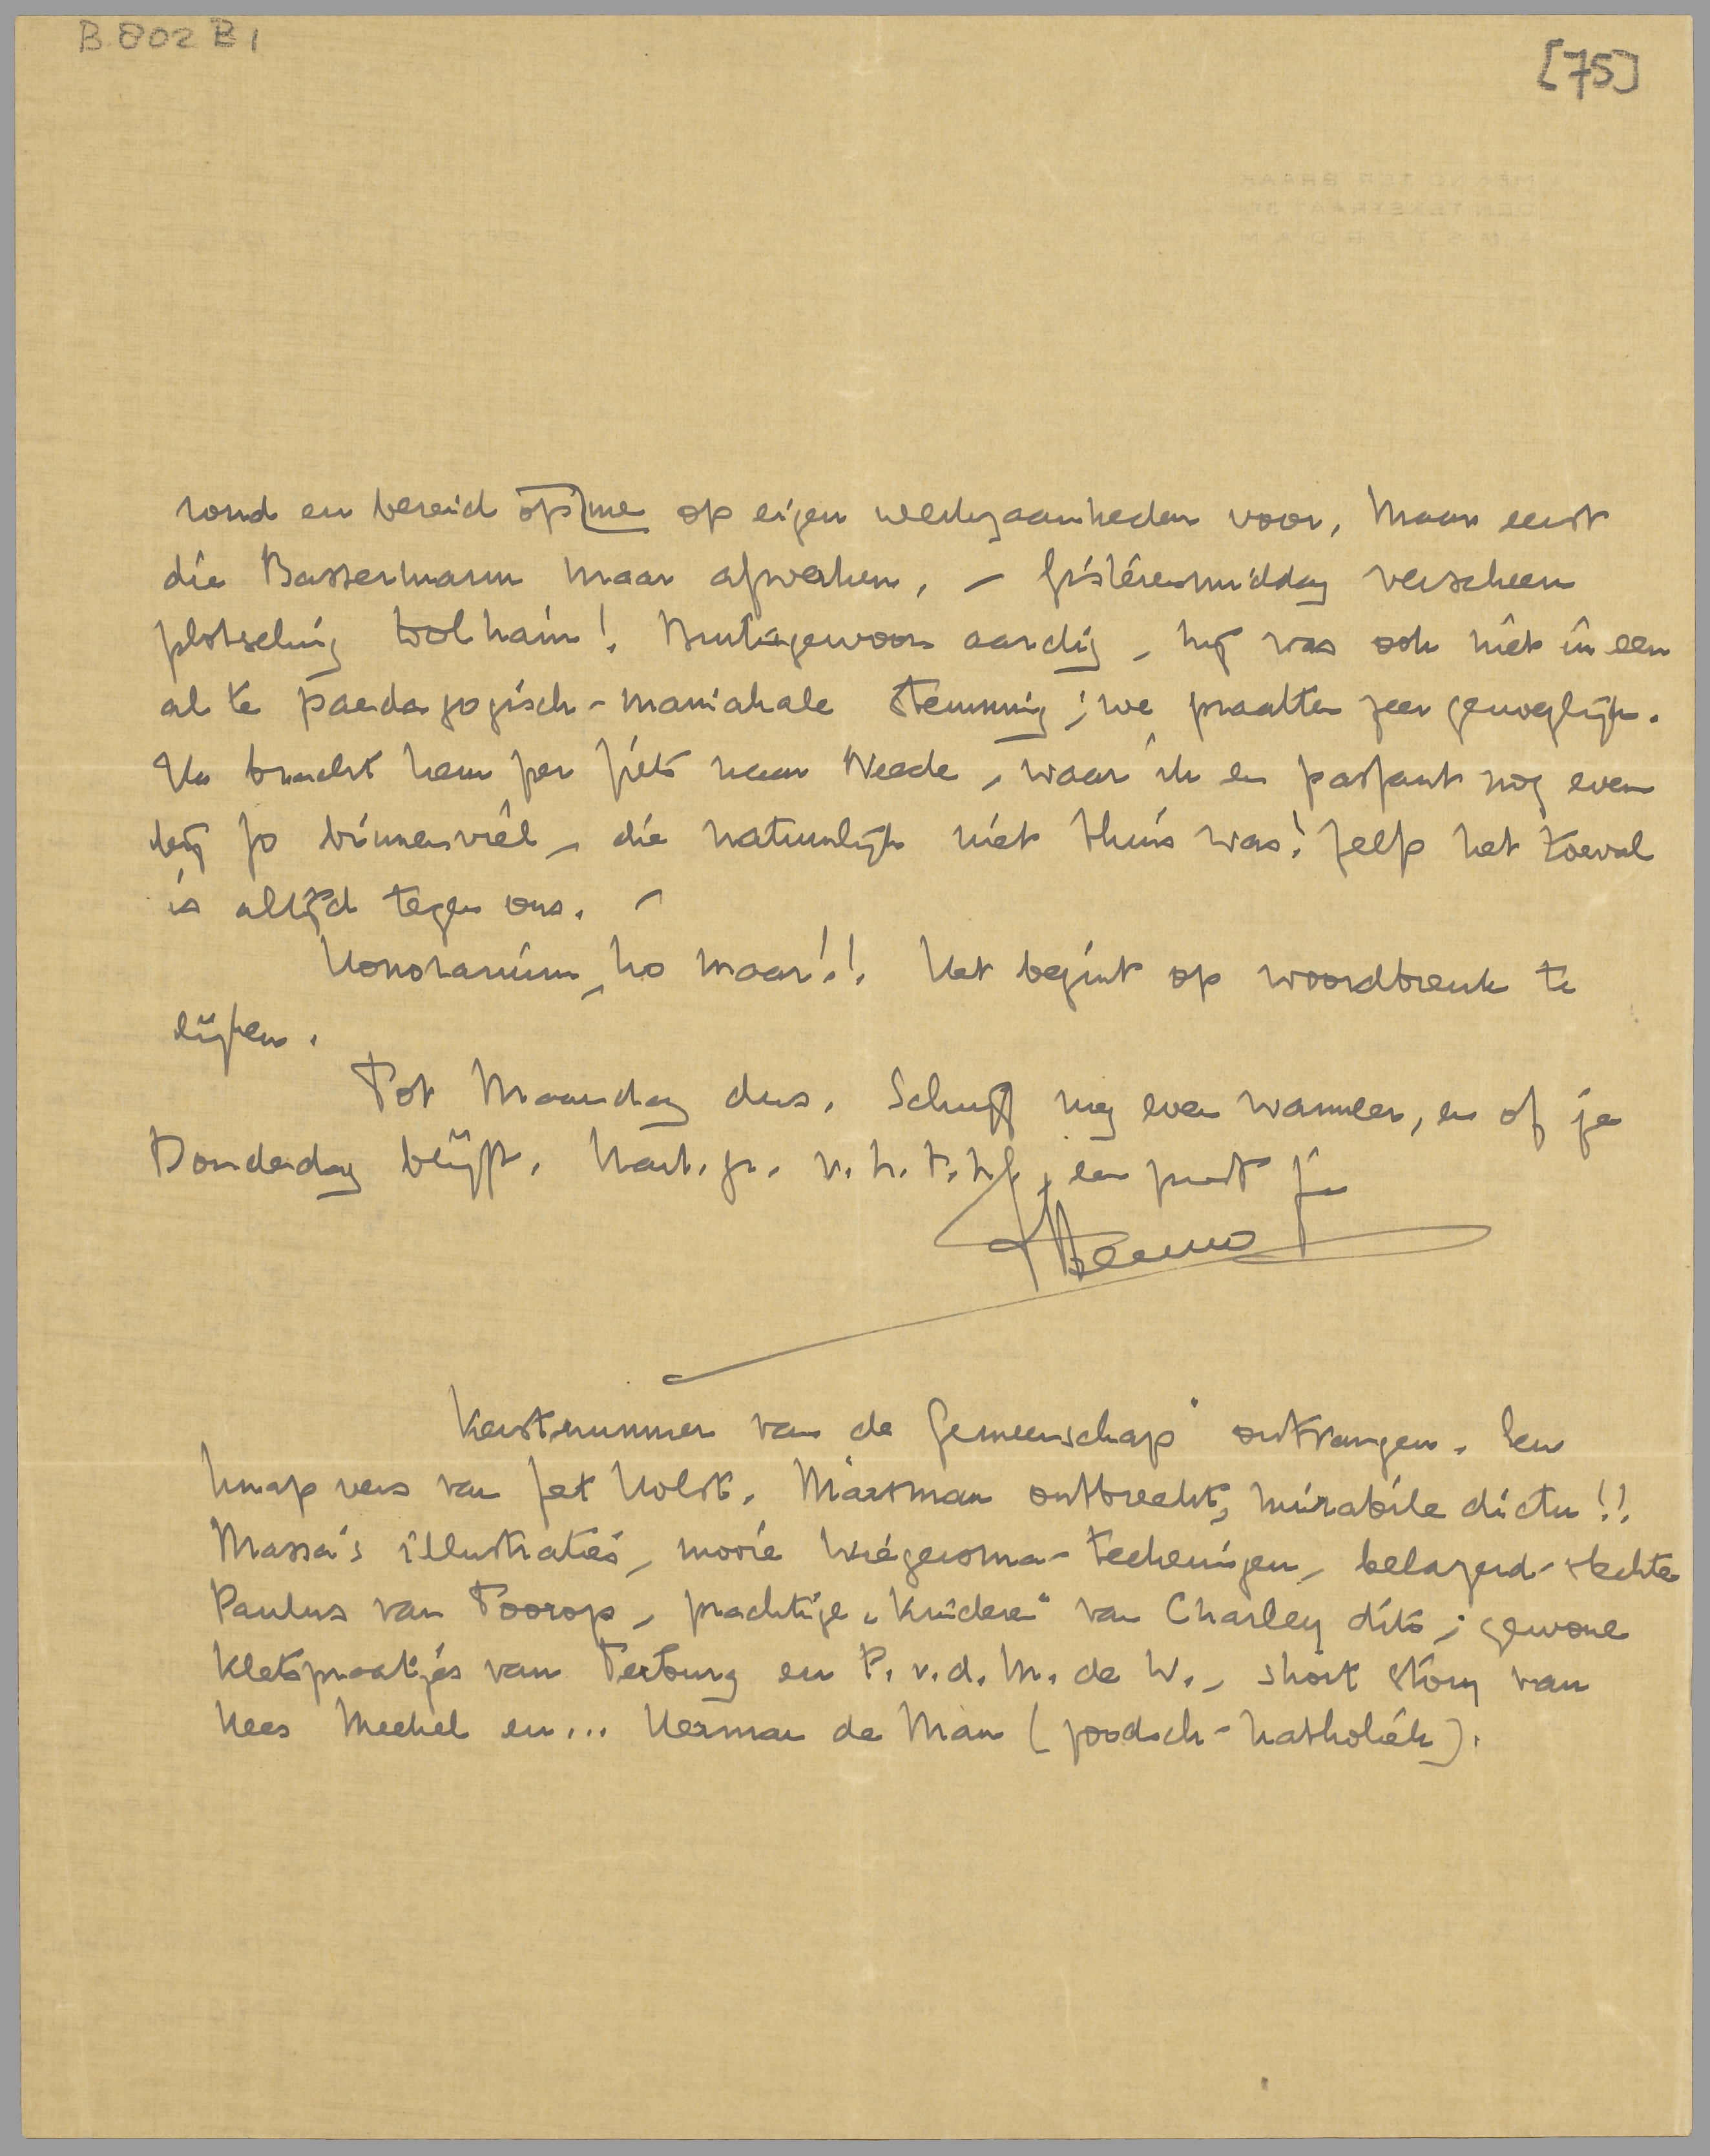 B 802 B 1
[75]
rond en bereid me op eigen werkzaamheden voor. Maar eerst
die Bassermann maar afwerken. – Gisterenmiddag verscheen
plotseling Wolhain! Buitengewoon aardig, hij was ook niet in een
al te paedagogisch-maniakale stemming; we praatten zeer genoeglijk.
Ik bracht hem per fiets naar Neede, waar ik en passant nog even
bij Jo binnenviel, die natuurlijk niet thuis was! Zelfs het toeval
is altijd tegen ons. –
Honorarium, ho maar!! Het begint op woordbreuk te
lijken.
Tot Maandag dus. Schrijf nog even wanneer, en of je
Donderdag blijft. Hart. gr. v. h. t. h., en poot je
Menno
Kerstnummer van de Gemeenschap" ontvangen. Een
knap vers van Jet Holst. Marsman ontbreekt, mirabile dictu!!
Massa's illustraties, mooie Wiegersma-teekeningen, belazerd-slechte
Paulus van Toorop, prachtige „Kinderen" van Charley dito; gewone
kletspraatjes van Terburg en P. v. d. M. de W., short story van
Kees Meekel en... Herman de Man (joodsch-katholiek).